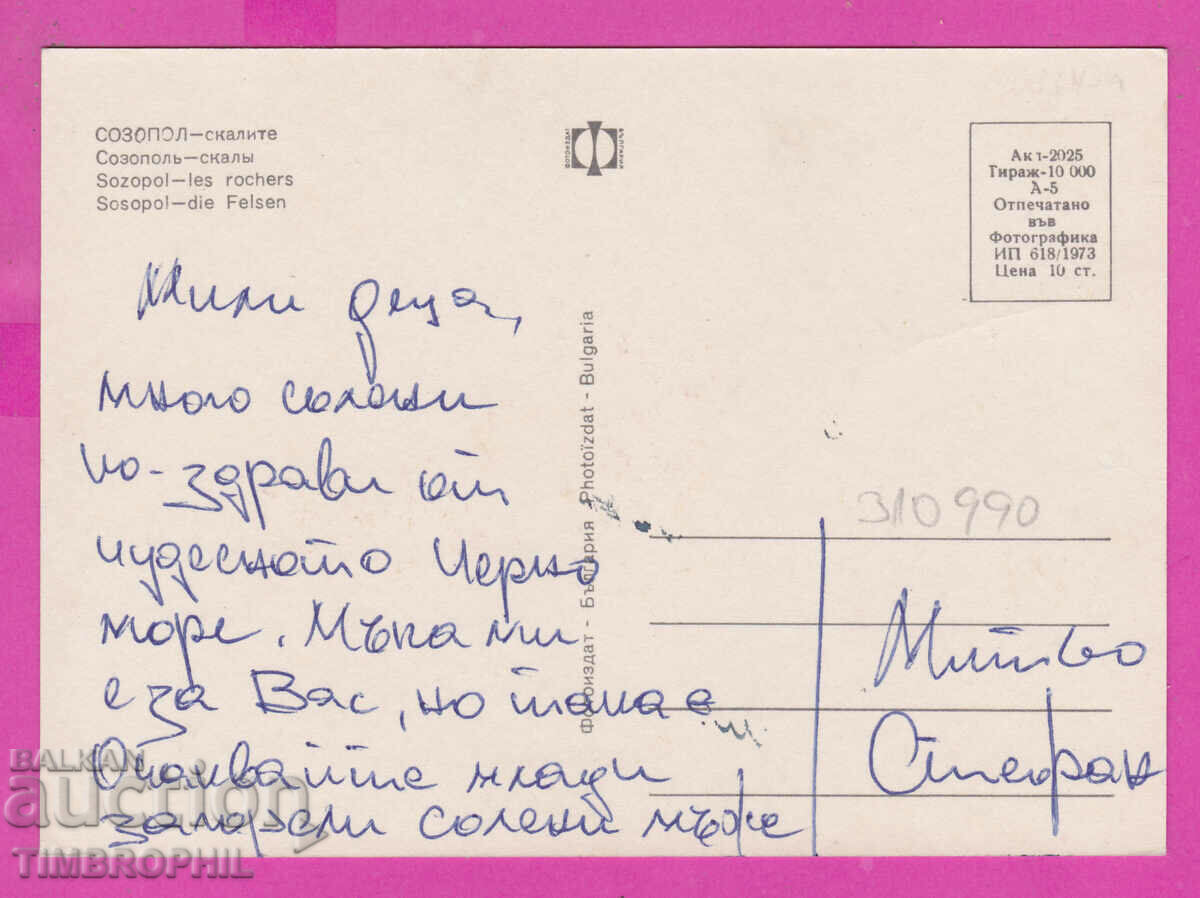 СОЗОПОЛ—скалите
Созополь—скалы
Sozopol—les rochers
Sosopol—die Felsen
ФОТОИЗДАТ
БЪЛГАРИЯ
Акт-2025
Тираж-10 000
А-5
Отпечатано
във
Фотографика
ИП 618/1973
Цена 10 ст.
Мили деца,
много солени
по-здрави от
чудесното Черно
море. Мъка ми
е за Вас, но така е
Очаквайте млади
загорели солени мъже
Фотоиздат - България Photoïzdat - Bulgaria
310990
Митко
Стефан
BALKAN
auction
TIMBROPHIL